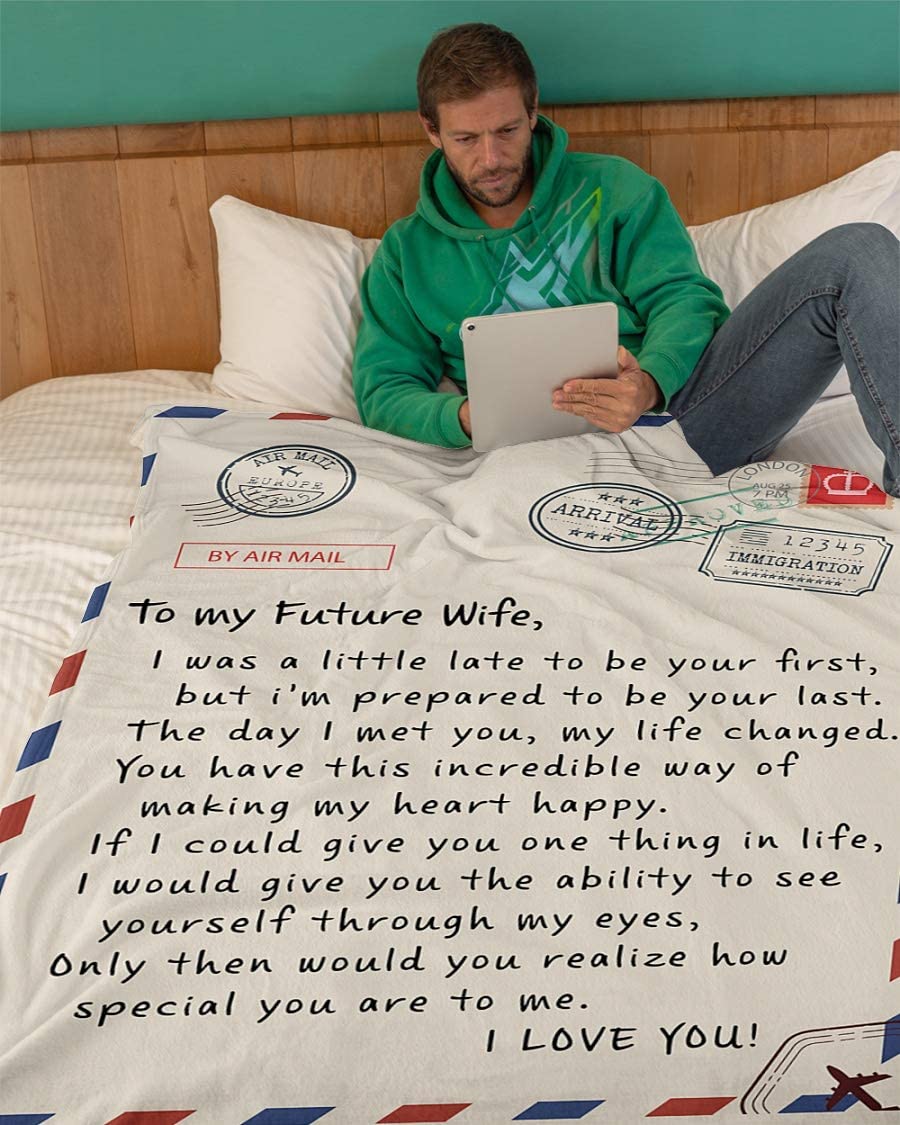 AIR MAIL
EUROPE
12345
LONDON
AUG 25
7 PM
ARRIVAL
12345
IMMIGRATION
BY AIR MAIL
To my Future Wife,
I was a little late to be your first,
but i'm prepared to be your last.
The day I met you, my life changed.
You have this incredible way of
making my heart happy.
If I could give you one thing in life,
I would give you the ability to see
yourself through my eyes,
Only then would you realize how
special you are to me.
I LOVE YOU!